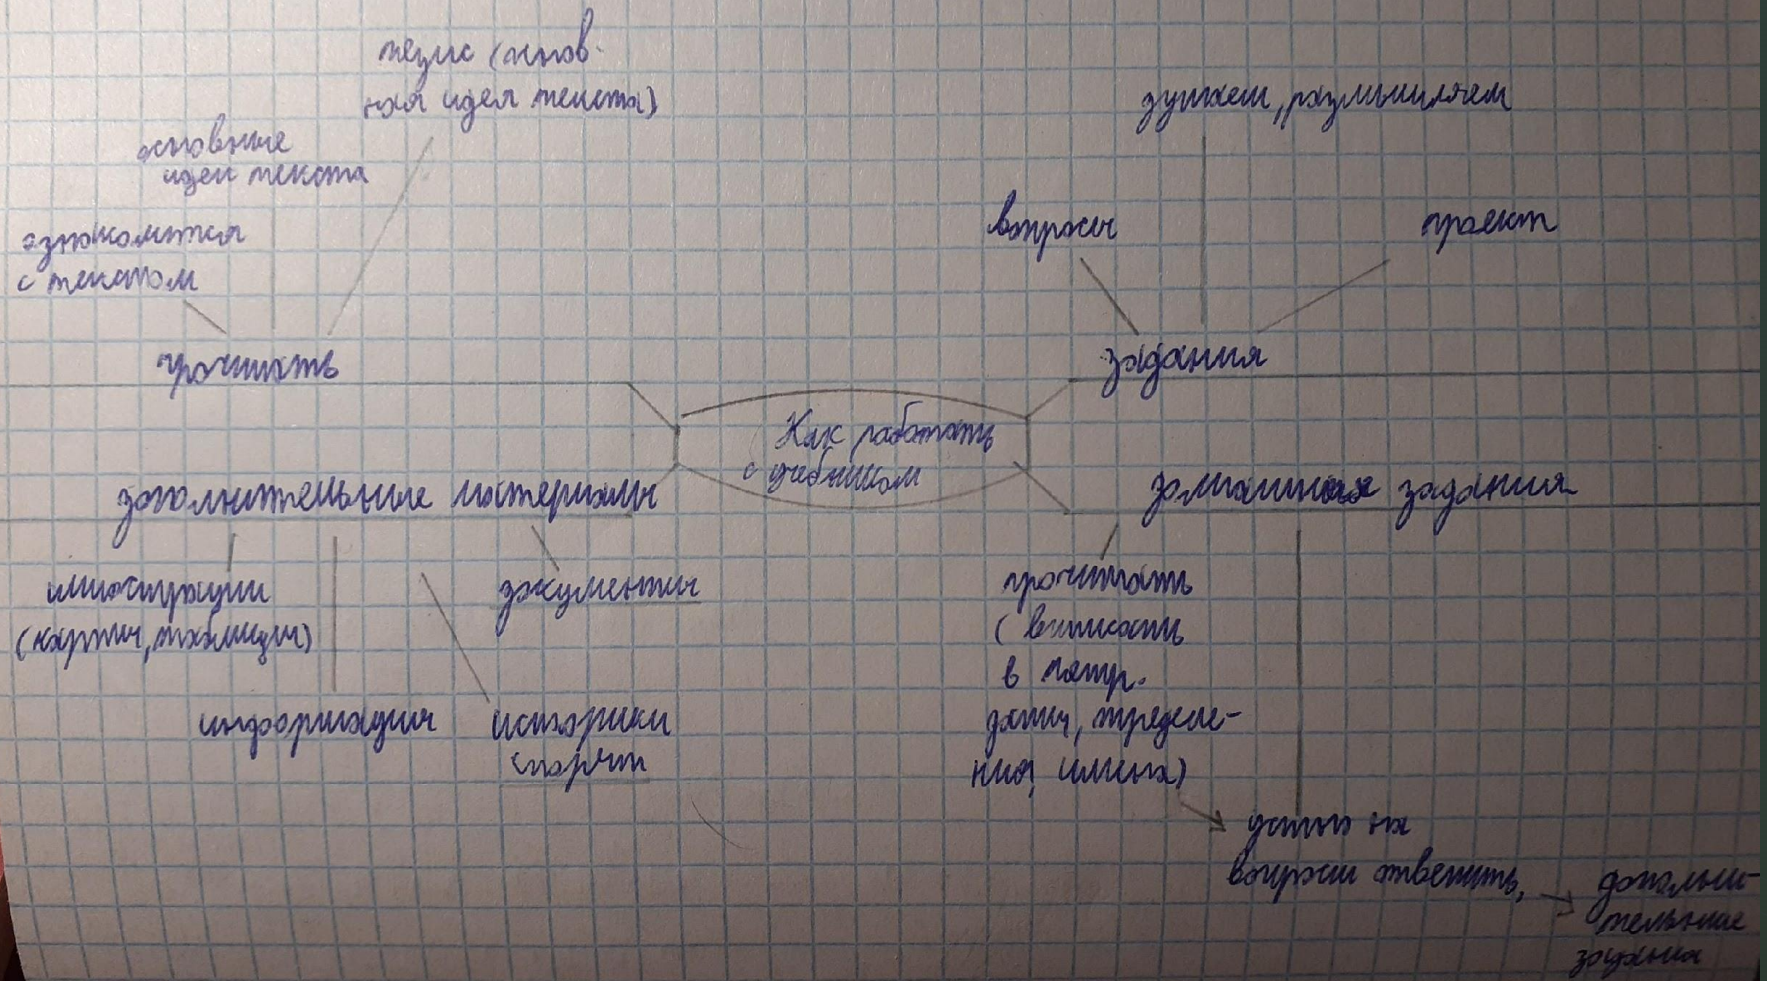 тезис (основ-
ная идея текста)
основные
идеи текста
ознакомится
с текстом
прочитать
думаем, размышляем
вопросы
проект
задания
Как работать
с учебником
дополнительные материалы
иллюстрации
(карты, таблицы)
документы
информации
историки
спорят
домашная задания
прочитать
(вникать
в
даты, определе-
ния, имена)
устно на
вопросы ответить,
дополни-
тельные
задания